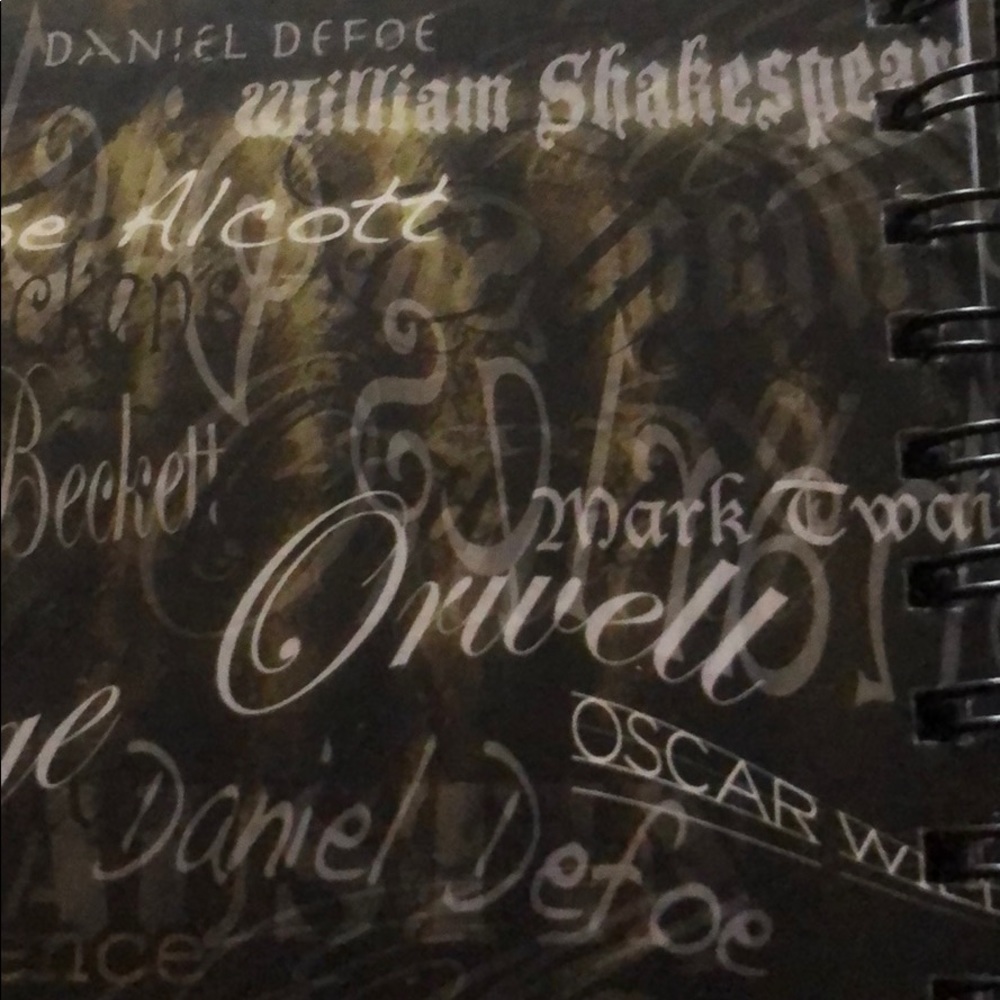 DANIEL DEFOE
William Shakespear
se Alcott
ckens
Beckett
Mark Twai
Orwell
OSCAR WIL
ge
Daniel Defoe
ence